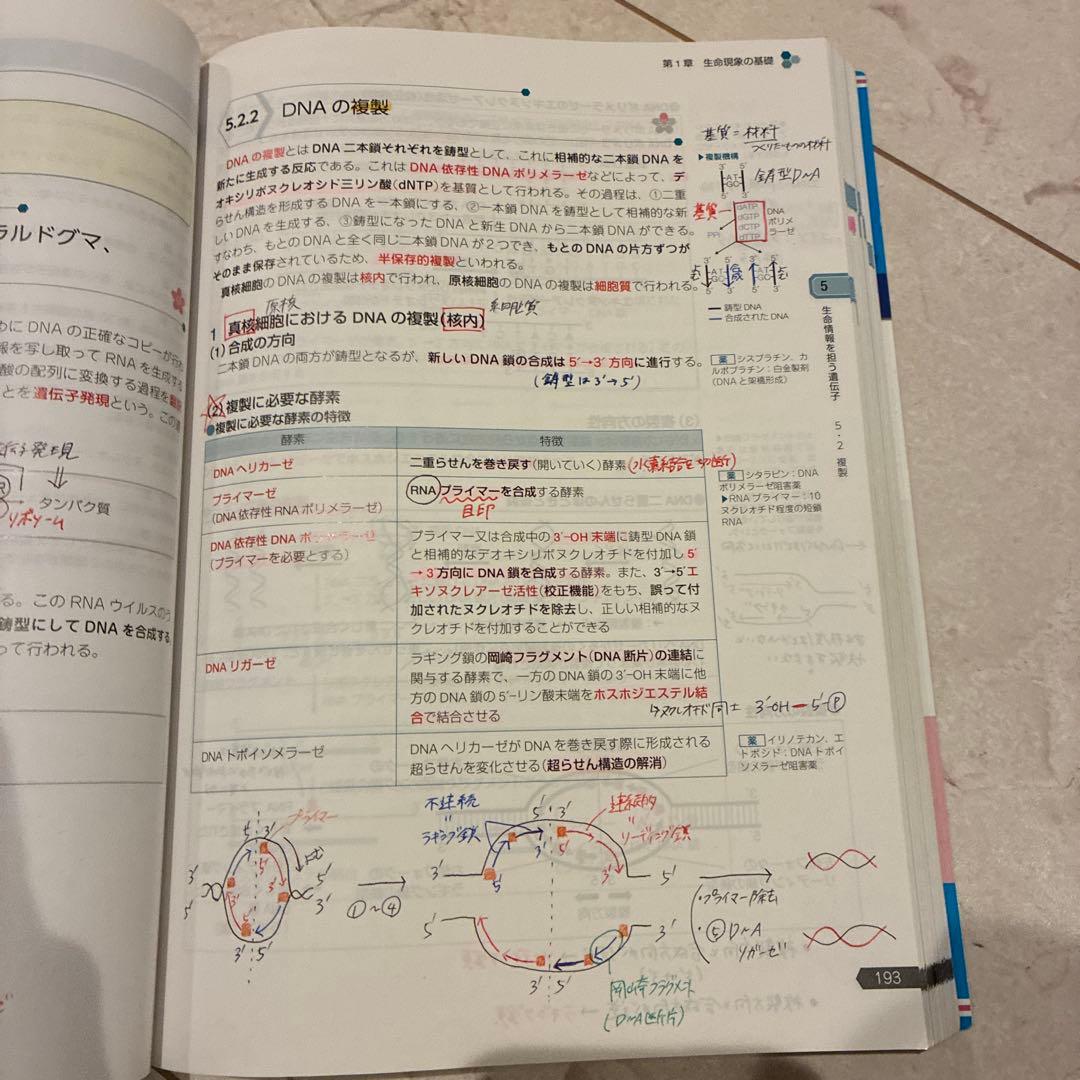 第1章 生命現象の基礎
5.2.2 DNA の複製
DNA の複製とは DNA 二本鎖それぞれを鋳型として、これに相補的な二本鎖 DNA を
新たに生成する反応である。これは DNA 依存性 DNA ポリメラーゼなどによって、デ
オキシリボヌクレオシド三リン酸(dNTP)を基質として行われる。その過程は、①二重
らせん構造を形成する DNA を一本鎖にする、②一本鎖 DNA を鋳型として相補的な新
しい DNA を生成する、③鋳型になった DNA と新生 DNA から二本鎖 DNA ができる。
すなわち、もとの DNA と全く同じ二本鎖 DNA が2つでき、もとの DNA の片方ずつが
そのまま保存されているため、半保存的複製といわれる。
真核細胞の DNA の複製は核内で行われ、原核細胞の DNA の複製は細胞質で行われる。
原核
細胞質
1 真核細胞における DNA の複製(核内)
(1) 合成の方向
二本鎖 DNA の両方が鋳型となるが、新しい DNA 鎖の合成は 5′→3′ 方向に進行する。
(鋳型は3′→5′)
(2) 複製に必要な酵素
●複製に必要な酵素の特徴
酵素 特徴
DNA ヘリカーゼ 二重らせんを巻き戻す(開いていく)酵素 (水素結合を切断)
プライマーゼ
(DNA 依存性 RNA ポリメラーゼ)
RNA プライマーを合成する酵素
目印
DNA 依存性 DNA ポリメラーゼ
(プライマーを必要とする)
プライマー又は合成中の 3′-OH 末端に鋳型 DNA 鎖
と相補的なデオキシリボヌクレオチドを付加し 5′
→ 3′方向に DNA 鎖を合成する酵素。また、3′→5′エ
キソヌクレアーゼ活性(校正機能)をもち、誤って付
加されたヌクレオチドを除去し、正しい相補的なヌ
クレオチドを付加することができる
DNA リガーゼ
ラギング鎖の岡崎フラグメント(DNA 断片)の連結に
関与する酵素で、一方の DNA 鎖の 3′-OH 末端に他
方の DNA 鎖の 5′-リン酸末端をホスホジエステル結
合で結合させる
↳ヌクレオチド同士 3′-OH—5′-Ⓟ
DNA トポイソメラーゼ
DNA ヘリカーゼが DNA を巻き戻す際に形成される
超らせんを変化させる(超らせん構造の解消)
基質=材料
つくりたいものの材料
▶複製機構
3′ 5′
AT
GC
5′ 3′
鋳型DNA
基質
dATP
dGTP
dCTP
dTTP
DNA
ポリメ
ラーゼ
PPi
鋳型 DNA
合成された DNA
薬 シスプラチン、カ
ルボプラチン:白金製剤
(DNA と架橋形成)
薬 シタラビン:DNA
ポリメラーゼ阻害薬
▶RNA プライマー:10
ヌクレオチド程度の短鎖
RNA
薬 イリノテカン、エ
トポシド:DNA トポイ
ソメラーゼ阻害薬
5
生命情報を担う遺伝子
5・2 複製
プライマー
5′ 3′
3′ 5′
①〜④
不連続
〃
ラギング鎖
連続的
〃
リーディング鎖
3′ 5′
5′ 3′
岡崎フラグメント
(DNA断片)
・プライマー除去
・⑤DNA
リガーゼ
193
ラルドグマ、
めに DNA の正確なコピーが行わ
報を写し取って RNA を生成する
酸の配列に変換する過程を翻訳
とを遺伝子発現という。この遺
伝子発現
タンパク質
リボソーム
る。この RNA ウイルスのう
鋳型にして DNA を合成する
って行われる。